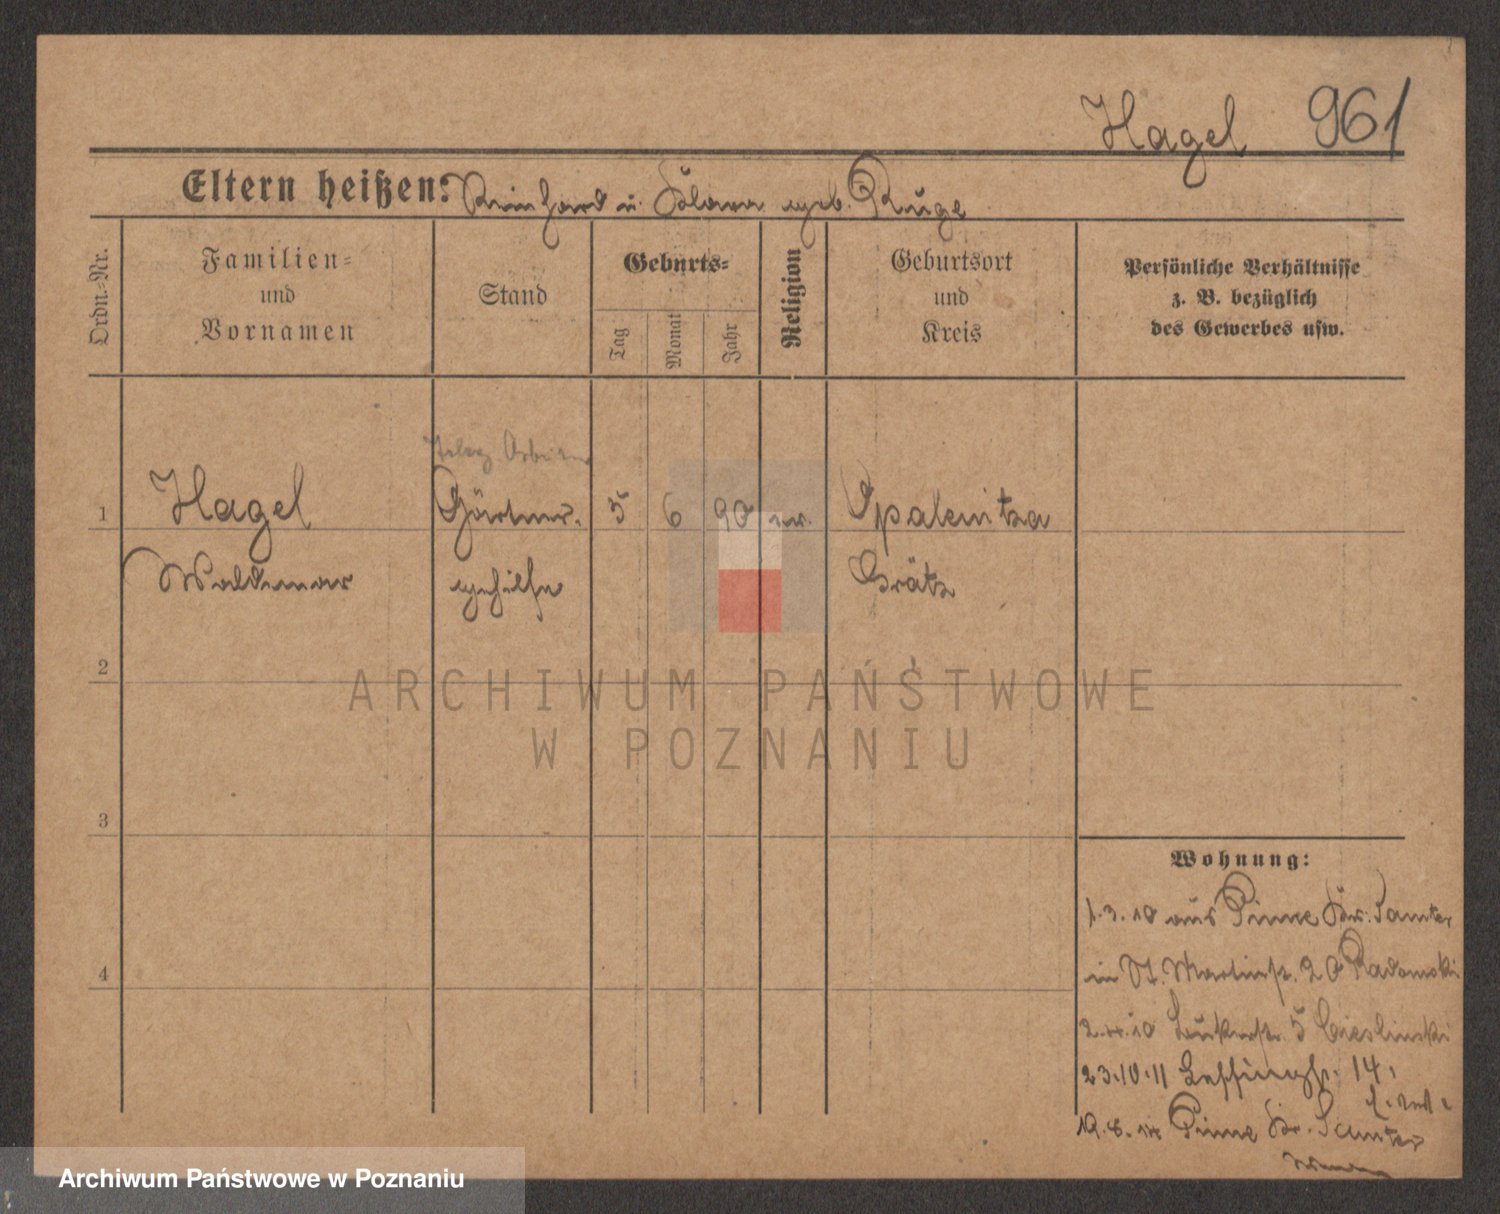 Hagel 961
Eltern heißen: Reinhard u. Klara geb. Ruge
Ordn.-Nr.
Familien-
und
Vornamen
Stand
Geburts-
Tag
Monat
Jahr
Religion
Geburtsort
und
Kreis
Persönliche Verhältnisse
z. B. bezüglich
des Gewerbes usw.
Arbeiter
1 Hagel Gärtner- 5 6 90 ev. Opalenitza
Waldemar gehilfe Grätz
2
ARCHIWUM PAŃSTWOWE
W POZNANIU
3
4
Wohnung:
1.3.10 aus Pinne Kr. Samter
in St. Martinstr. 20 Radomski
10 5 Cieslinski
23.10.11 Lessingstr. 14,
Pinne Kr. Samter
Archiwum Państwowe w Poznaniu